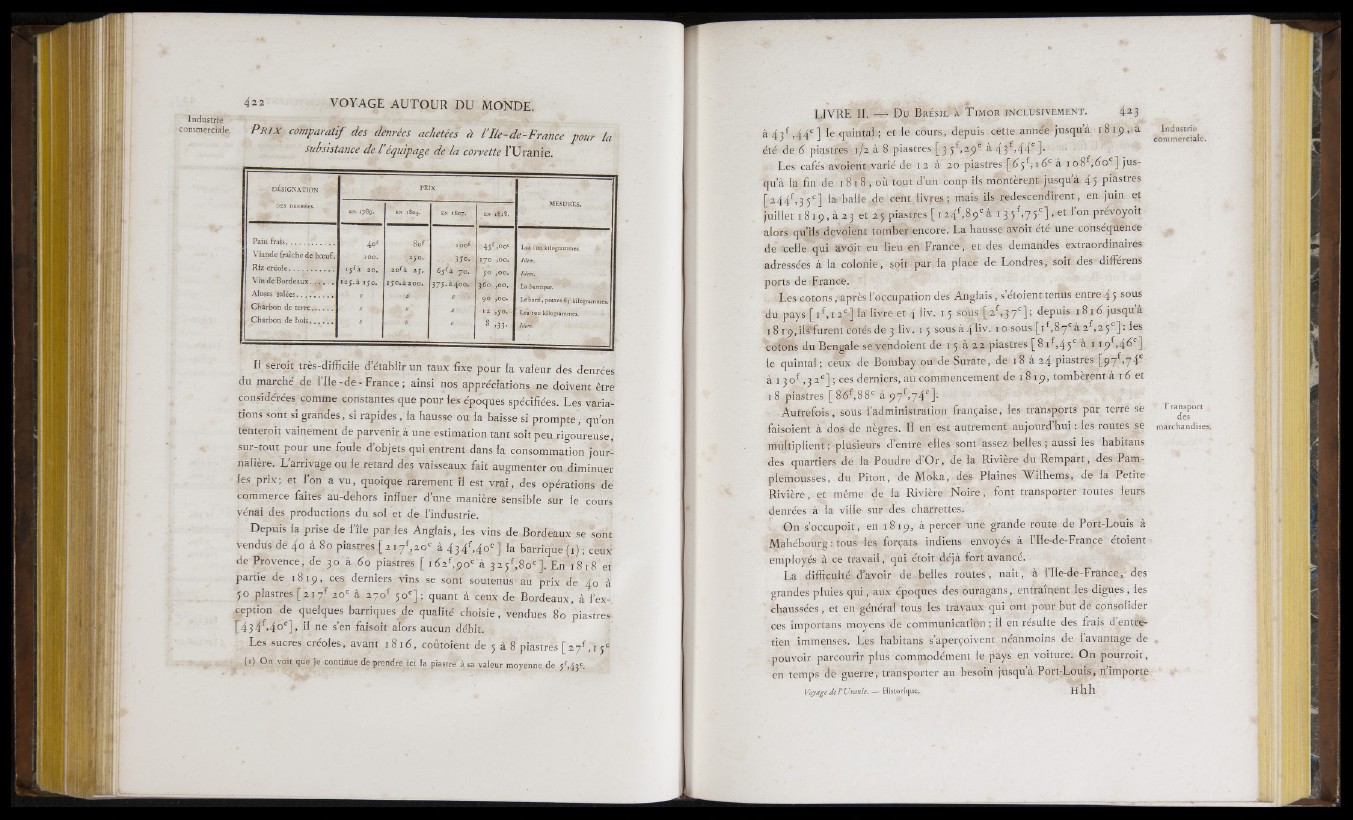 422 VOYAGE AUTOUR DU MONDE.
Industrie
commerciale.
PRIX comparatif des denrées achetées à l'Ile-de-France pour la
subsistance de l'équipage de la corvette l'Uranie.
DÉSIGNATION DES DENRÉES. PRIX MESURES.
EN 1789. EN 1804. EN 1807. EN 1818.
Pain frais............ 40f 80f 100f 45f,00c Les 100 kilogrammes.
Viande fraîche de bœuf. 100. 250. 350. 170 ,00. Idem.
Riz créole........... 15f à 20. 20f à 25. 65f à 70. 50 ,00. Idem.
Vin de Bordeaux...... 125. à 150. 150. à 200. 375. à 400. 360 ,00. La barrique.
Aloses salées......... " " " 90 ,00. Le baril, pesant 85 kilogrammes.
Charbon de terre...... " " " 12 ,50. Les 100 kilogrammes.
Charbon de bois...... " " " 8 ,33. Idem.
Il seroit très-difficile d'établir un taux fixe pour la valeur des denrées
du marché de l'Ile-de-France; ainsi nos appréciations ne doivent être
considérées comme constantes que pour les époques spécifiées. Les varia-
tions sont si grandes, si rapides, la hausse ou la baisse si prompte, qu'on
tenteroit vainement de parvenir à une estimation tant soit peu rigoureuse,
sur-tout pour une foule d'objets qui entrent dans la consommation jour-
nalière. L'arrivage ou le retard des vaisseaux fait augmenter ou diminuer
les prix; et l'on a vu, quoique rarement il est vrai, des opérations de
commerce faites au-dehors influer d'une manière sensible sur le cours
vénal des productions du sol et de l'industrie.
Depuis la prise de l'île par les Anglais, les vins de Bordeaux se sont
vendus de 40 à 80 piastres [217f,20c à 434f,40c] la barrique (1); ceux
de Provence, de 30 à 60 piastres [162f,90c à 325f,80c]. En 1818 et
partie de 1819, ces derniers vins se sont soutenus au prix de 40 à
50 piastres [217f 20c à 270f 50c]; quant à ceux de Bordeaux, à l'ex-
ception de quelques barriques de qualité choisie, vendues 80 piastres
[434f,40c], il ne s'en faisoit alors aucun débit.
Les sucres créoles, avant 1816, coûtoient de 5 à 8 piastres [27f,15c
(1) On voit que je continue de prendre ici la piastre à sa valeur moyenne de 5f,43c.
LIVRE II. — DU BRÉSIL À TIMOR INCLUSIVEMENT. 423
à 43f,44c] le quintal; et le cours, depuis cette année jusqu'à 1819, a
été de 6 piastres 1/2 à 8 piastres [35f,29c à 43f,44c].
Industrie
commerciale.
Les cafés avoient varié de 12 à 20 piastres [65f,16c à 108f,60c] jus-
qu'à la fin de 1818, où tout d'un coup ils montèrent jusqu'à 45 piastres
[244f,35c] la balle de cent livres; mais ils redescendirent, en juin et
juillet 1819, à 23 et 25 piastres [124f,89c à 135f,75c], et l'on prévoyoit
alors qu'ils devoient tomber encore. La hausse avoit été une conséquence
de celle qui avoit eu lieu en France, et des demandes extraordinaires
adressées à la colonie, soit par la place de Londres, soit des différens
ports de France.
Les cotons, après l'occupation des Anglais, s'étoient tenus entre 45 sous
du pays [1f,12c] la livre et 4 liv. 15 sous [2f,37c]; depuis 1816 jusqu'à
1819, ils furent cotés de 3 liv. 15 sous à 4 liv. 10 sous [1f,87c à 2f,25c]: les
cotons du Bengale se vendoient de 15 à 22 piastres [81f,45c à 119f,46c]
le quintal; ceux de Bombay ou de Surate, de 18 à 24 piastres [97f,74c
à 130f,32c]; ces derniers, au commencement de 1819, tombèrent à 16 et
18 piastres [86f,88c à 97f,74c].
Autrefois, sous l'administration française, les transports par terre se
faisoient à dos de nègres. Il en est autrement aujourd'hui: les routes se
Transport
des
marchandises.
multiplient; plusieurs d'entre elles sont assez belles; aussi les habitans
des quartiers de la Poudre d'Or, de la Rivière du Rempart, des Pam-
plemousses, du Piton, de Moka, des Plaines Wilhems, de la Petite
Rivière, et même de la Rivière Noire, font transporter toutes leurs
denrées à la ville sur des charrettes.
On s'occupoit, en 1819, à percer une grande route de Port-Louis à
Mahébourg: tous les forçats indiens envoyés à l'Ile-de-France étoient
employés à ce travail, qui étoit déjà fort avancé.
La difficulté d'avoir de belles routes, naît, à l'Ile-de-France, des
grandes pluies qui, aux époques des ouragans, entraînent les digues, les
chaussées, et en général tous les travaux qui ont pour but de consolider
ces importans moyens de communication; il en résulte des frais d'entre-
tien immenses. Les habitans s'aperçoivent néanmoins de l'avantage de
pouvoir parcourir plus commodément le pays en voiture. On pourroit,
en temps de guerre, transporter au besoin jusqu'à Port-Louis, n'importe
Voyage de l'Uranie. — Historique. Hhh